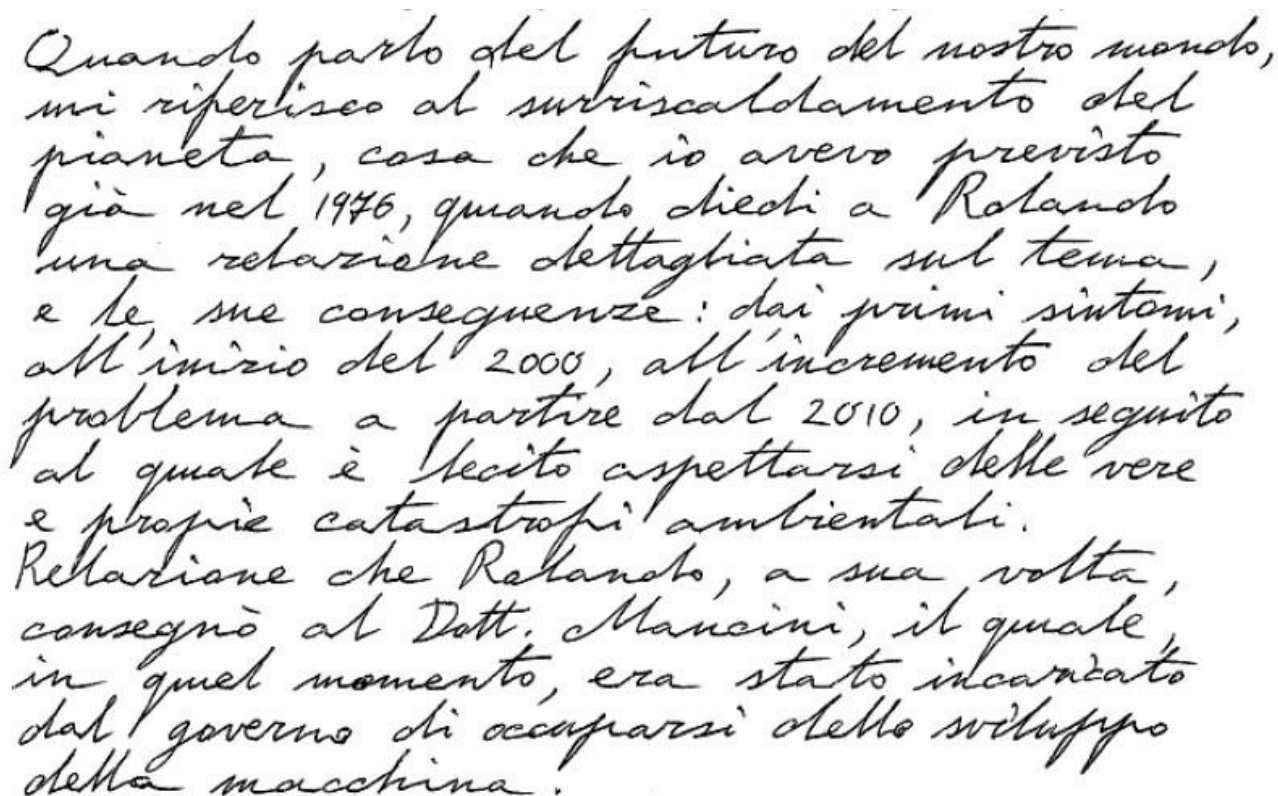 Quando parlo del futuro del nostro mondo,
mi riferisco al surriscaldamento del
pianeta, cosa che io avevo previsto
già nel 1976, quando diedi a Rolando
una relazione dettagliata sul tema,
e le sue conseguenze: dai primi sintomi,
all'inizio del 2000, all'incremento del
problema a partire dal 2010, in seguito
al quale è lecito aspettarsi delle vere
e proprie catastrofi ambientali.
Relazione che Rolando, a sua volta,
consegnò al Dott. Mancini, il quale,
in quel momento, era stato incaricato
dal governo di occuparsi dello sviluppo
della macchina.